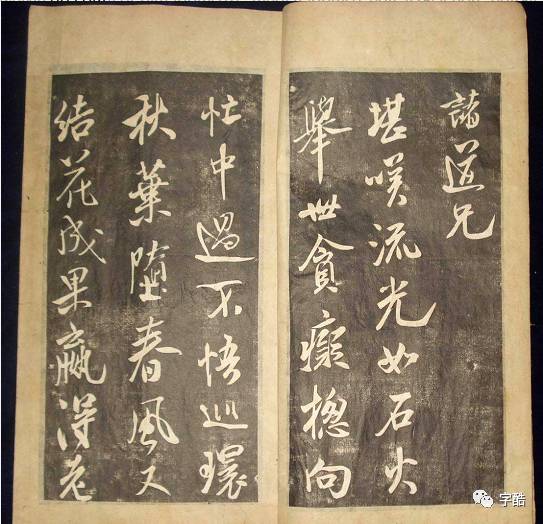 諸道兄
堪嘆流光如石火
舉世貪癡摠向
忙中過不悟巡環
秋葉墮春風又
結花成果贏得老
字酷